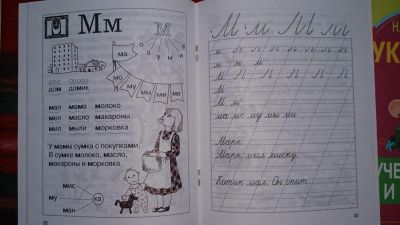 М Мм М
ма
о а у ы и э
мо му мы ми ме
дом домик
мал мама молоко
мел масло макароны
мил мыли морковка
У мамы сумка с покупками.
В сумке молоко, масло,
макароны и морковка.
мис
му ка
ман
32
М м М м
м
м м м
М
М
М м
ма мо му мы ми
Марк
Марк мыл миску.
Котик мял. Он спит.
33
УЧЕ
И